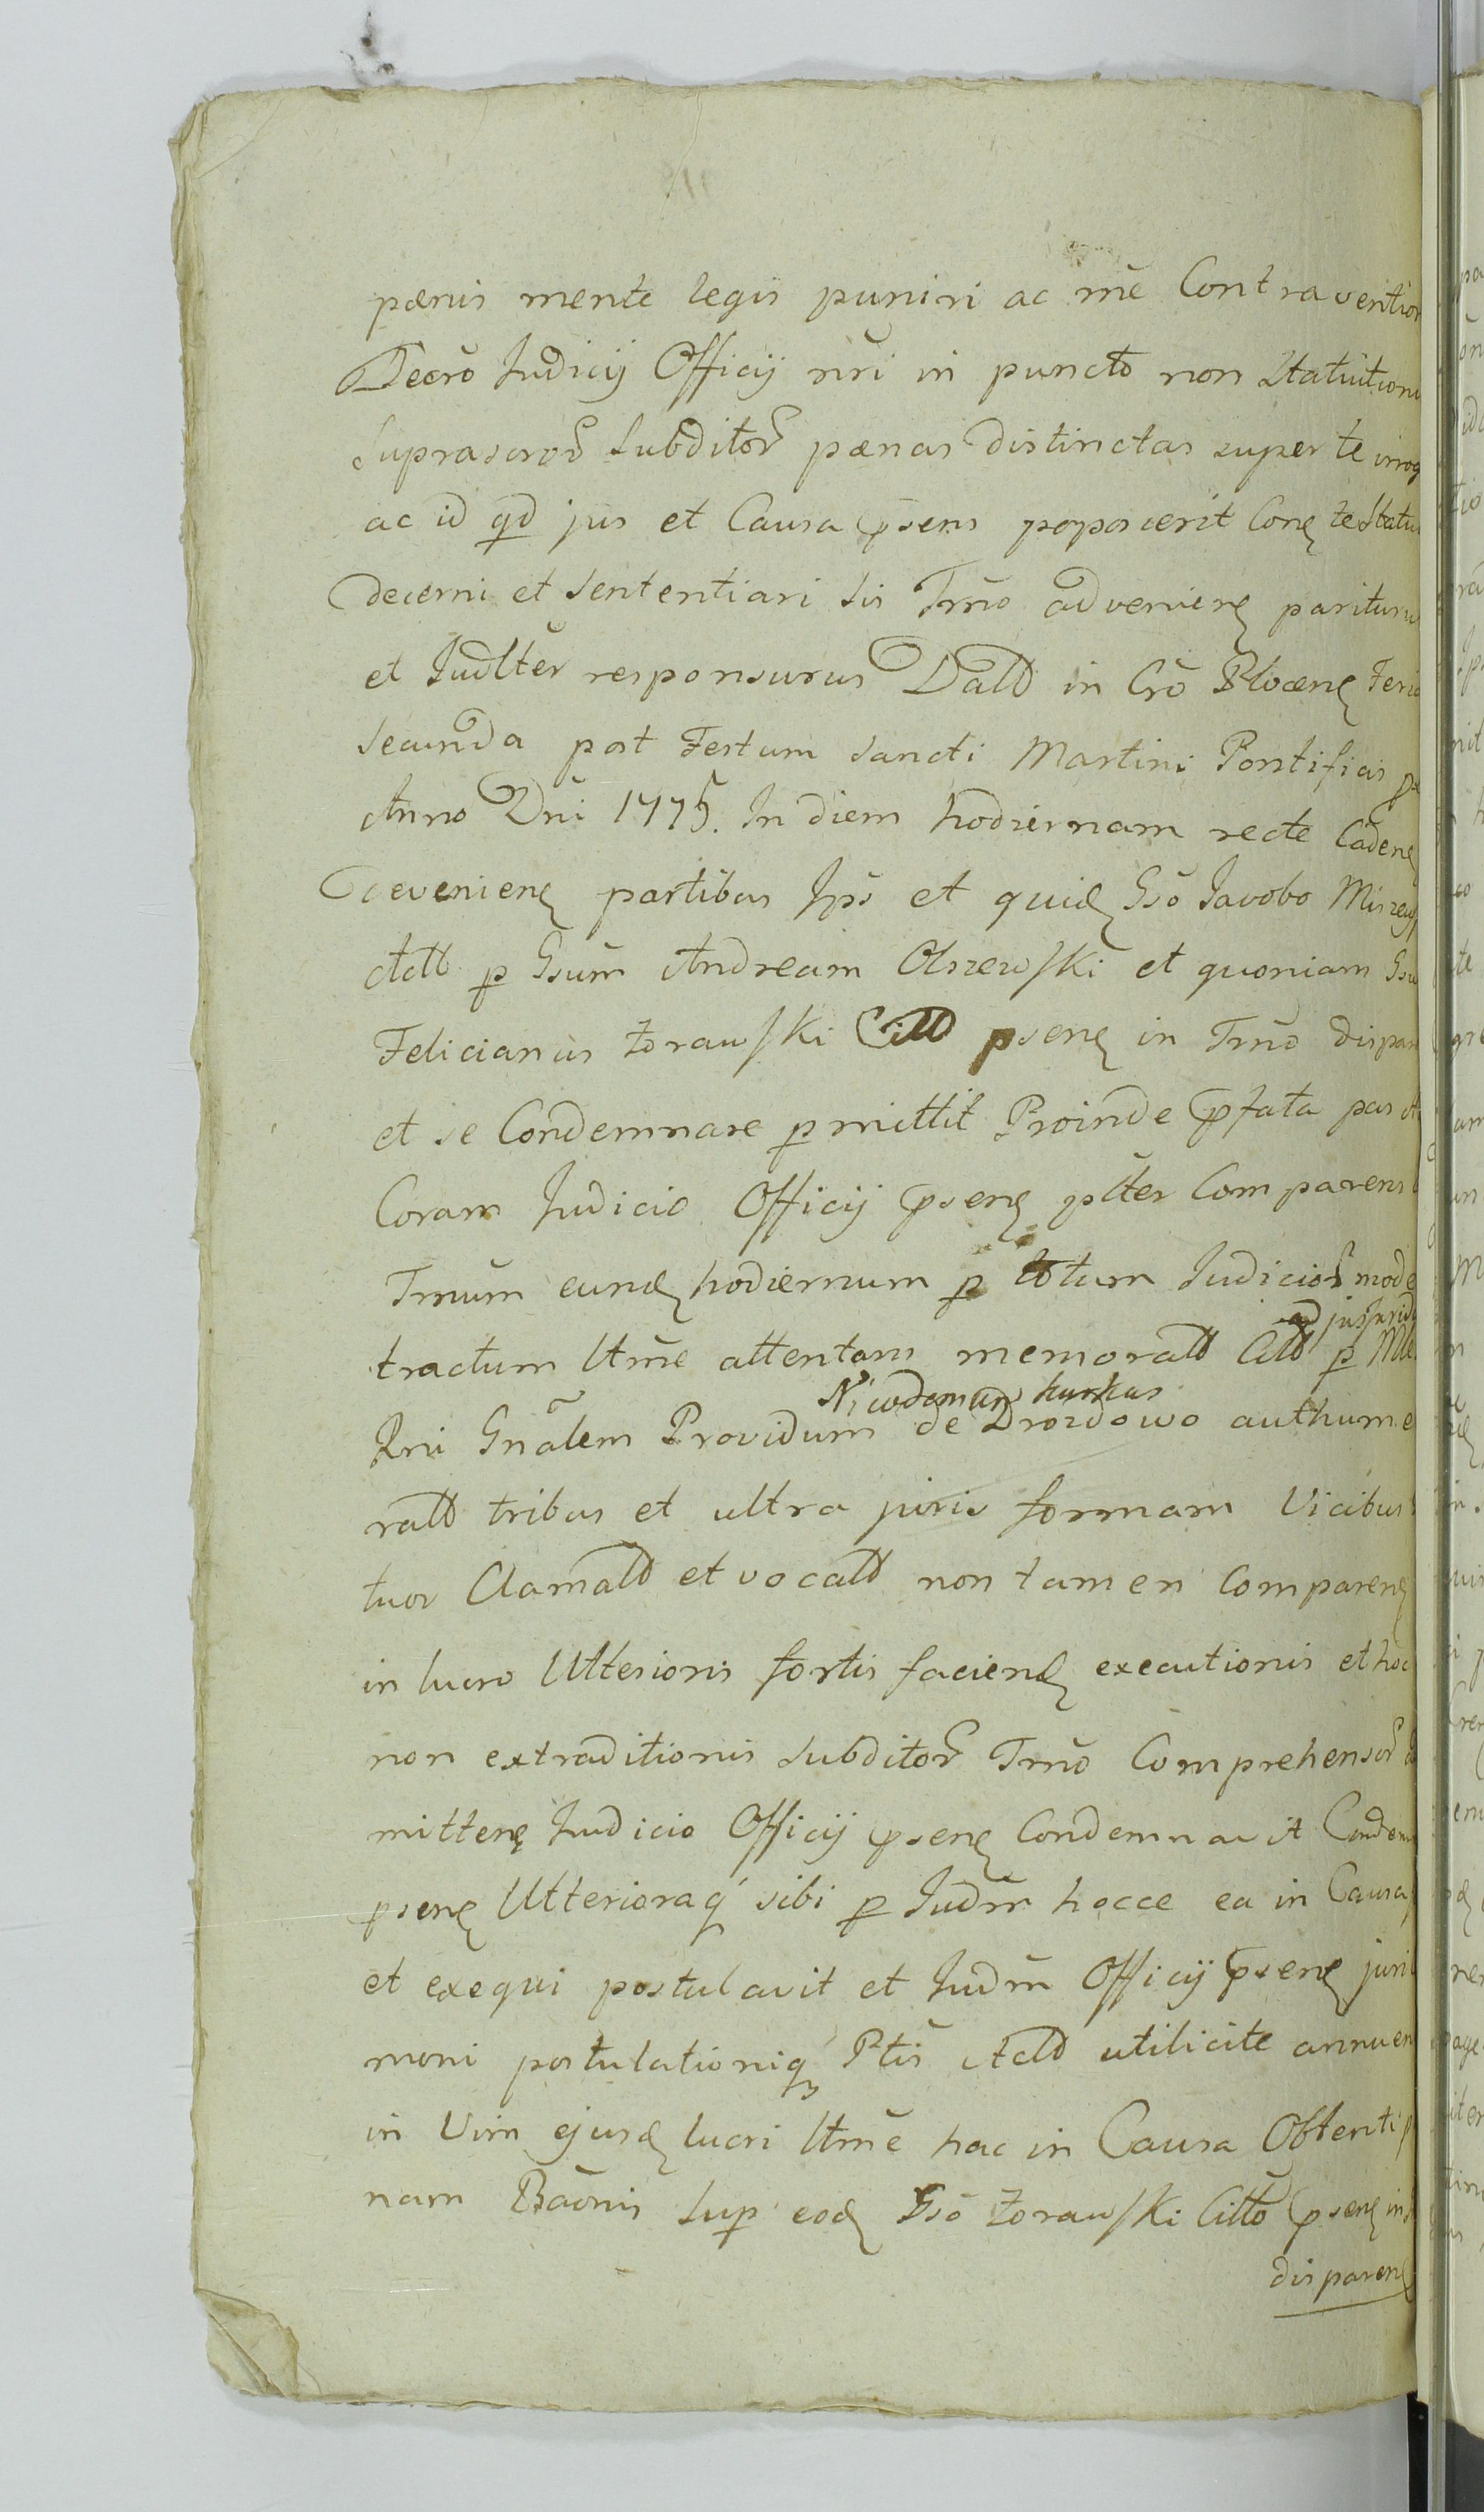 pænis mente legis puniri ac mẽ Contravention
Decrõ Judicij Officij nrĩ in puncto non Statuitioni
Suprascror̃ Subditor̃ pænas distinctas super te irrog
ac id qd jus et Causa psens poposcerit Conę te Statu
decerni et Sententiari Sis Trnõ advenienę pariturus
et Judlter responsurus Datt in Crõ Plocenę Feria
secunda post Festum Sancti Martini Pontificis
Anno Dnĩ 1775. In diem hodiernam recte Cadenę
devenienę partibus Ips̃ et quidę Gsõ Jacobo Miszew
Actt p Gsum̃ Andream Olszewski et quoniam Gsu
Felicianus Zorawski Citt psenę in Trnõ dispar
et se Condemnare pmittit Proinde pfata pars
Coram Judicio Officij psenę plter Comparens
Trnum̃ eundę hodiernum p totum Judicior̃ mode
tractum ltmẽ attentans memoratt Citt p Mi
ad jusjurid
Rni Gnãlem Providum de Drozdowo authume
Nicodemum kurkus
ratt tribus et ultra juris formam Vicibus
tuor Clamatt et vocatt non tamen Comparenę
in lucro Ulterioris fortis faciendę executionis et hoc
non extraditionis Subditor̃ Trnõ Comprehensor̃
mittenę Judicio Officij psenę Condemnavit Condem
psenę Ulterioraq́ sibi p Judm̃ hocce ea in Causa
et exequi postulavit et Judm̃ Officij psenę juri
moni postulationiq́ Ptis̃ Actt utilicite annuen
in Vim ejusdę lucri ltmẽ hac in Causa Obtenti
nam Bãonis Sup eodę Gsõ Zorawski Citto psenę in
disparenę